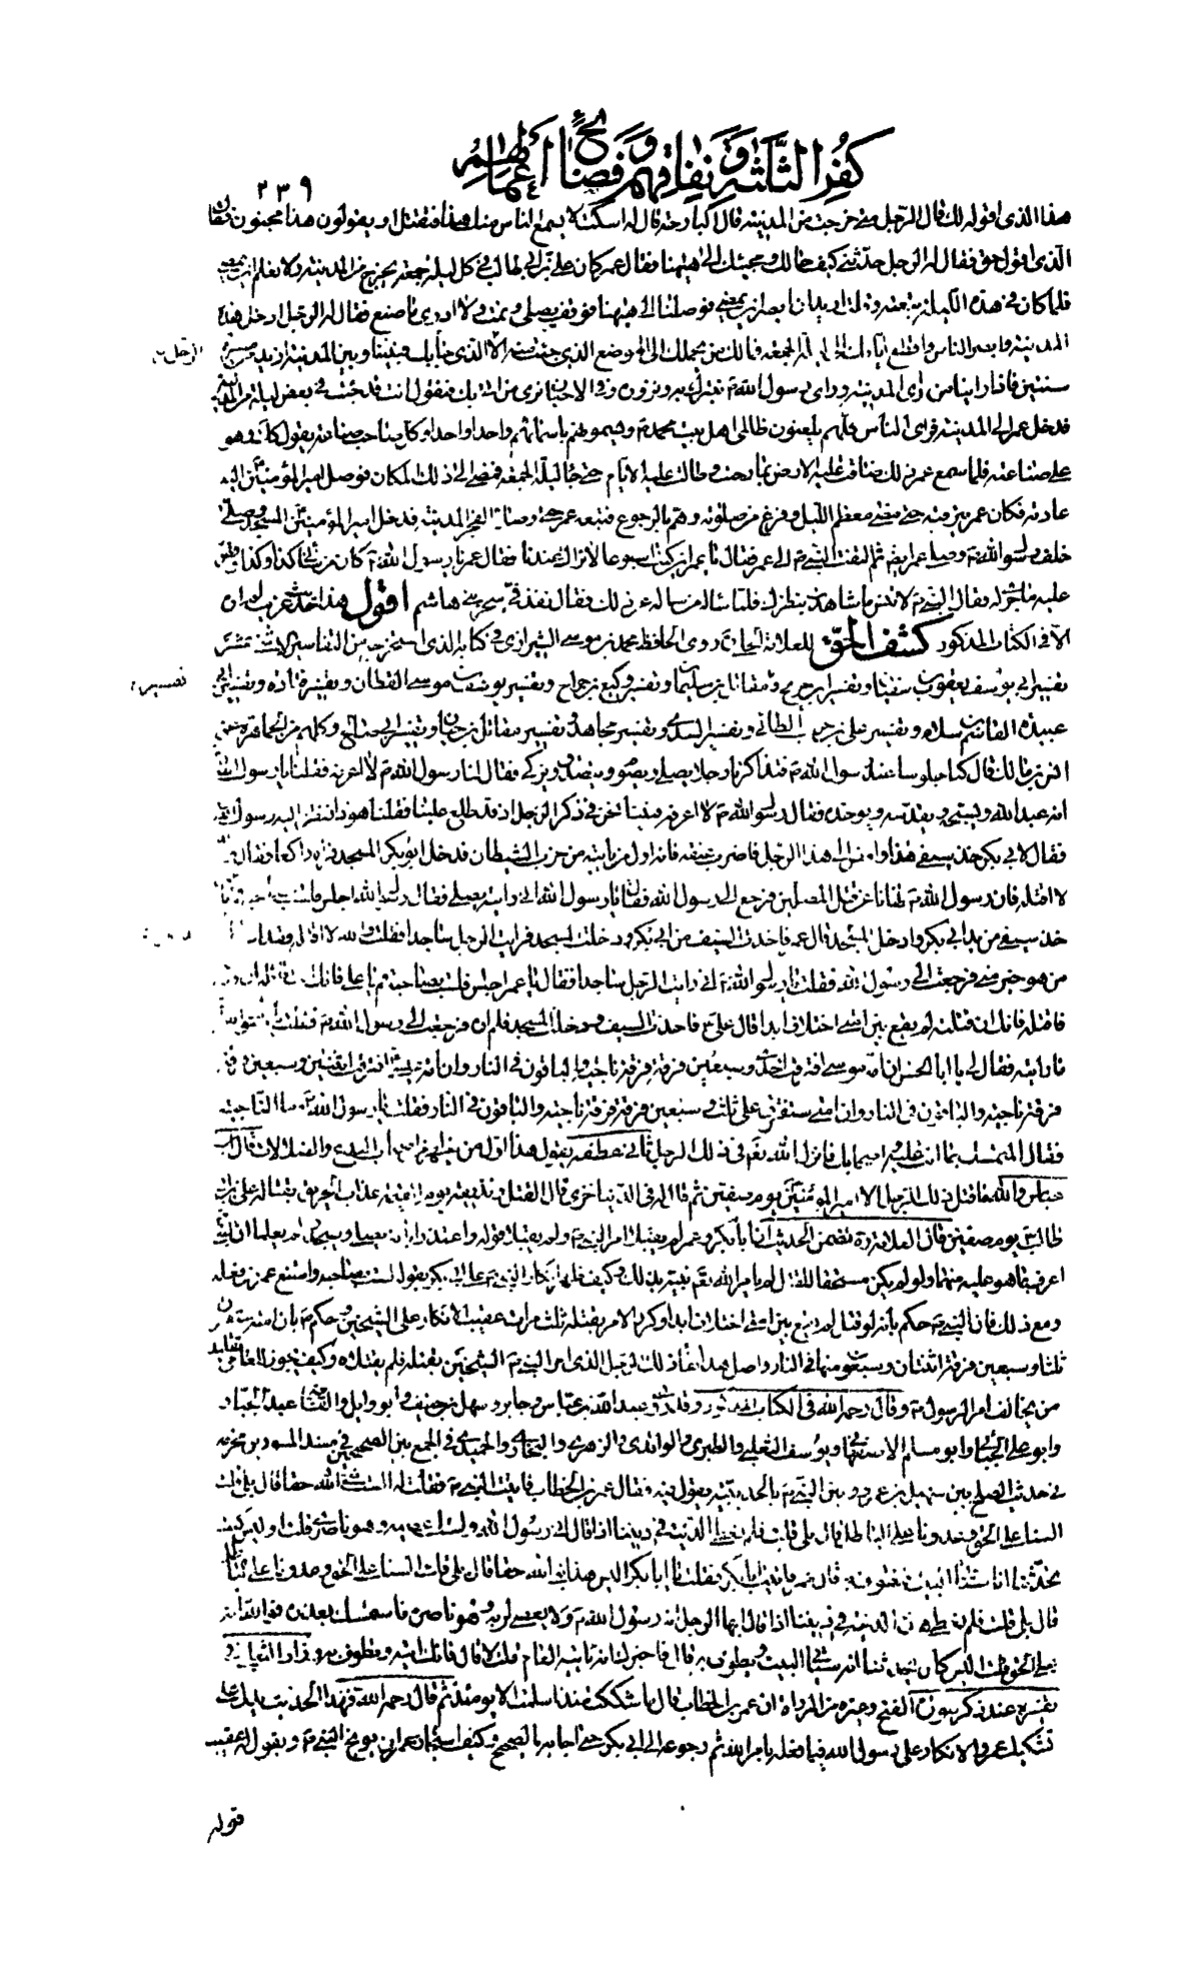 كفر الثلثة و نفاقهم و فضائح أعمالهم
٢٣٩
هذا الذى اقوله لك قال الرجل خرجت من المدينة قال اكبارحة قال له اسكت لا يسمع الناس منك هذا فتقتل او يقولون هذا مجنون فقال
الذى اقول حق فقال له الرجل حدثنى كيف حالك و مجيئك الى هيهنا فقال عمر كان على بن ابى طالب فى كل ليلة جمعة يخرج من المدينة ولا نعلم اين يمضى
فلما كان فى هذه الليلة تبعته و اريد ان ابصر اين يمضى فوصلنا الى هيهنا فوقف يصلى و نمت ولا ادرى ما صنع فقال له الرجل ادخل هذه
المدينة وابصر الناس واقطع ايامك الى ليلة الجمعة فمالك من يحملك الى الموضع الذى جئت منه الا الذى جاء بك فبيننا وبين المدينة ازيد من مسيرة
الرجل
سنتين فاذا راينا من راى المدينة و راى رسول الله نتبرك به ونزوره و الاحيان نرى من اتى بك فنقول انت قد جئت فى بعض ليلة من المدينة
فدخل عمر الى المدينة فراى الناس كلهم يلعنون ظالمى اهل بيت محمد ويسموهم باسمائهم واحدا واحدا وكل صاحب صناعة يقول كذلك وهو
على صناعته فلما سمع عمر ذلك ضاقت عليه الارض بما رحبت و طالت عليه الايام حتى جاء ليلة الجمعة فمضى الى ذلك المكان فوصل امير المؤمنين اليه
عادته فكان عمر يترقبه حتى مضى معظم الليل و فرغ من صلوته وهم بالرجوع فتبعه عمر حتى وصلا الفجر المدينة فدخل امير المؤمنين المسجد وصلى
خلف رسول الله وصلى عمر ايضا ثم التفت النبى الى عمر فقال يا عمر اين كنت اسبوعا لا نراك عندنا فقال عمر يا رسول الله كان من شانى كذا وكذا وقص
عليه ما جرى له فقال النبى لا تنس ما شاهدت بنظرك فلما سأله من سأله عن ذلك فقال نفذ فى سحر بنى هاشم اقول هذا حديث غريب لم اره
الا فى الكتاب المذكور كشف الحق للعلامة الحلى روى الحافظ محمد بن موسى الشيرازى فى كتابه الذى استخرجه من التفاسير الاثنى عشر
تفسير ابى يوسف يعقوب بن سفيان و تفسير ابن جريح و مقاتل بن سليمان و تفسير وكيع بن جراح و تفسير يوسف بن موسى القطان و تفسير قتادة و تفسير ابى
تفسير
عبيدة القاسم بن سلام و تفسير على بن حرب الطائى و تفسير السدى و تفسير مجاهد و تفسير مقاتل بن حيان و تفسير ابى صالح و كلهم من الجماهرة عن
انس بن مالك قال كنا جلوسا عند رسول الله فتذاكرنا رجلا يصلى و يصوم و يتصدق و يزكى فقال لنا رسول الله لا اعرفه فقلنا يا رسول الله
انه يعبد الله ويسبحه و يقدسه و يوحده فقال رسول الله لا اعرفه فبينا نحن فى ذكر الرجل اذ قد طلع علينا فقلنا هو ذا فنظر اليه رسول الله
فقال لابى بكر خذ سيفى هذا وامض الى هذا الرجل فاضرب عنقه فانه اول من ياتيه من حزب الشيطان فدخل ابو بكر المسجد فراه راكعا فقال
لا اقتله فان رسول الله نهانا عن قتل المصلين فرجع الى رسول الله فقال يا رسول الله انى رايته يصلى فقال رسول الله اجلس فلست بصاحبه
خذ سيفى من يد ابى بكر وادخل المسجد قال عمر فاخذت السيف من ابى بكر ودخلت المسجد فرايت الرجل ساجدا فقلت والله لا اقتله فقد
من هو خير منى فرجعت الى رسول الله فقلت يا رسول الله انى رايت الرجل ساجدا فقال يا عمر اجلس فلست بصاحبه قم يا على فانك
فاقتله فانك ان قتلته لم يقع بين امتى اختلاف ابدا قال على فاخذت السيف و دخلت المسجد فلم اره فرجعت الى رسول الله فقلت
ما رايته فقال لى يا ابا الحسن ان امة موسى افترقت احدى و سبعين فرقة فرقة ناجية والباقون فى النار وان امة عيسى افترقت اثنتين و سبعين
فرقة ناجية والباقون فى النار وان امتى ستفترق على ثلث و سبعين فرقة فرقة ناجية والباقون فى النار فقلت يا رسول الله ما الناجية
فقال المتمسك بما انت عليه و اصحابك فانزل الله تعم فى ذلك الرجل ثانى عطفه يقول هذا اول من يظهر من اصحاب البدع والضلالات قال ابن
عباس والله ما قتل ذلك الرجل الا امير المؤمنين يوم صفين ثم قال له فى الدنيا خزى قال القتل ونذيقه يوم القيمة عذاب الحريق بقتاله على بن ابى
طالب يوم صفين قال العلامة ره تضمن الحديث ان ابا بكر وعمر لم يقبلا امر النبى ولم يقبلا قوله واعتذرا بانه يصلى ويسجد ولم يعلما ان النبى
اعرف بما هو عليه منهما ولو لم يكن مستحقا للقتل لم يامر الله نبيه بذلك وكيف ظهر انكار النبى على ابى بكر بقوله لست بصاحبه وامتنع عمر من قتله
ومع ذلك فان النبى حكم بانه لو قتل لم يقع بين امتى اختلاف ابدا وكرر الامر بقتله ثلث مرات عقيب الانكار على الشيخين وحكم بان امته ستفترق
ثلثا وسبعين فرقة اثنتان وسبعون منها فى النار واصل هذا بقاء ذلك الرجل الذى امر النبى الشيخين بقتله فلم يقتلاه وكيف يجوز للعامى تقليد
من يخالف امر الرسول وقال رحمه الله فى الكتاب المذكور وقد روى عبد الله بن عباس وجابر و سهل بن حنيف و ابو وايل والقاضى عبد الجبار
وابو على الجبائى وابو مسلم الاصفهانى ويوسف الثعلبى والطبرى والواقدى والزهرى والبخارى والحميدى فى الجمع بين الصحيحين فى مسند المسور بن مخرمة
فى حديث الصلح بين سهيل بن عمرو وبين النبى بالحديبية يقول فيه فقال عمر بن الخطاب فاتيت النبى فقلت له الست نبى الله حقا قال بلى قلت
السنا على الحق وعدونا على الباطل قال بلى قلت فلم نعطى الدنية فى ديننا اذا قال انى رسول الله ولست اعصيه وهو ناصرى قلت اوليس كنت
تحدثنا انا سناتى البيت ونطوف به قال فاتيت ابا بكر فقلت يا ابا بكر اليس هذا نبى الله حقا قال بلى قلت السنا على الحق وعدونا على الباطل
قال بلى قلت فلم نعطى هذه الدنية فى ديننا اذا قال ايها الرجل انه رسول الله ولا يعصى لربه وهو ناصره فاستمسك بغرزه فو الله انه
على الحق قلت اليس كان يحدثنا انه سياتى البيت ويطوف به قال فاخبرك انه ياتيه العام قلت لا قال فانك اتيه وتطوف به وزاد الثعلبى فى
تفسيره عند ذكر سورة الفتح وغيره من الرواة ان عمر بن الخطاب قال ما شككت منذ اسلمت الا يومئذ ثم قال رحمه الله فهذا الحديث يدل على
تشكيك عمر والانكار على رسول الله فيما فعله بامر الله ثم رجوعه الى ابى بكر حتى اجابه بالصحيح وكيف استجاز عمر ان يوبخ النبى ويقول له عقيب
قوله